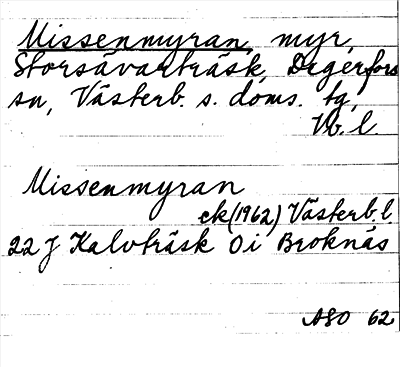 Missenmyran, myr,
Storsävarträsk, Degerfors
sn, Västerb. s. doms. tg,
Vb. l
Missenmyran
ek (1962) Västerb. l.
22 J Kalvträsk 0 i Broknäs
ASO 62